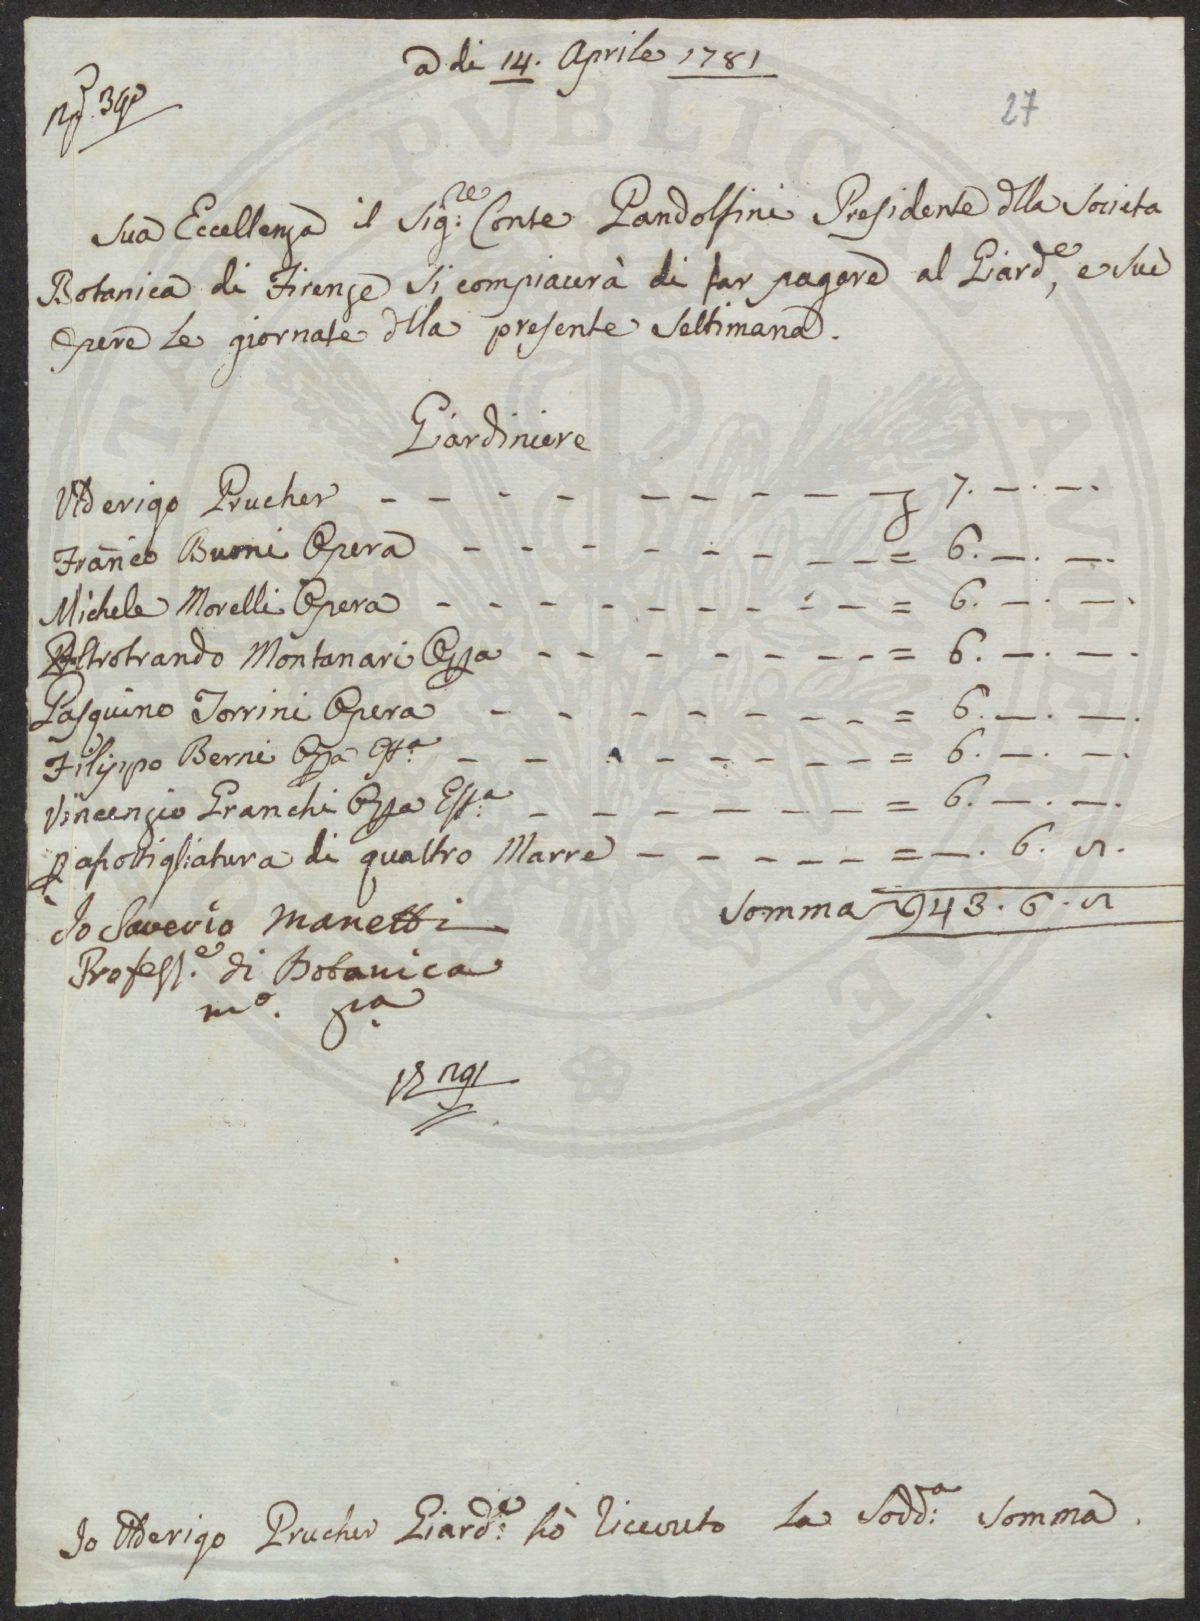 a di 14. Aprile 1781
27
Sua Eccellenza il Sig:re Conte Pandolfini Presidente dlla Societa
Botanica di Firenze si compiacerà di far pagare al Giard:e, e sue
Opere le giornate dlla presente Settimana.
Giardiniere
Ulderigo Prucher - - - - - - - - - 7. —. —.
Franco Burni Opera - - - - - - - - = 6. —. —.
Michele Morelli Opera - - - - - - - - = 6. —. —.
Montanari Oppa - - - - - - - = 6. —. —.
Pasquino Torrini Opera - - - - - - - = 6. —. —.
Filippo Berni Oppa Essa - - - - - - - - = 6. —. —.
Vincenzio Franchi Oppa Ess:a - - - - - - = 6. —. —.
p apottigliatura di quattro Marre - - - - - = —. 6. 8.
Somma 43. 6. 8
Io Saverio Manetti
Profess:e di Botanica
mo. pa
PUBLICA
Io Ulderigo Prucher Giard:e hò riceuuto la Sodd:a Somma.